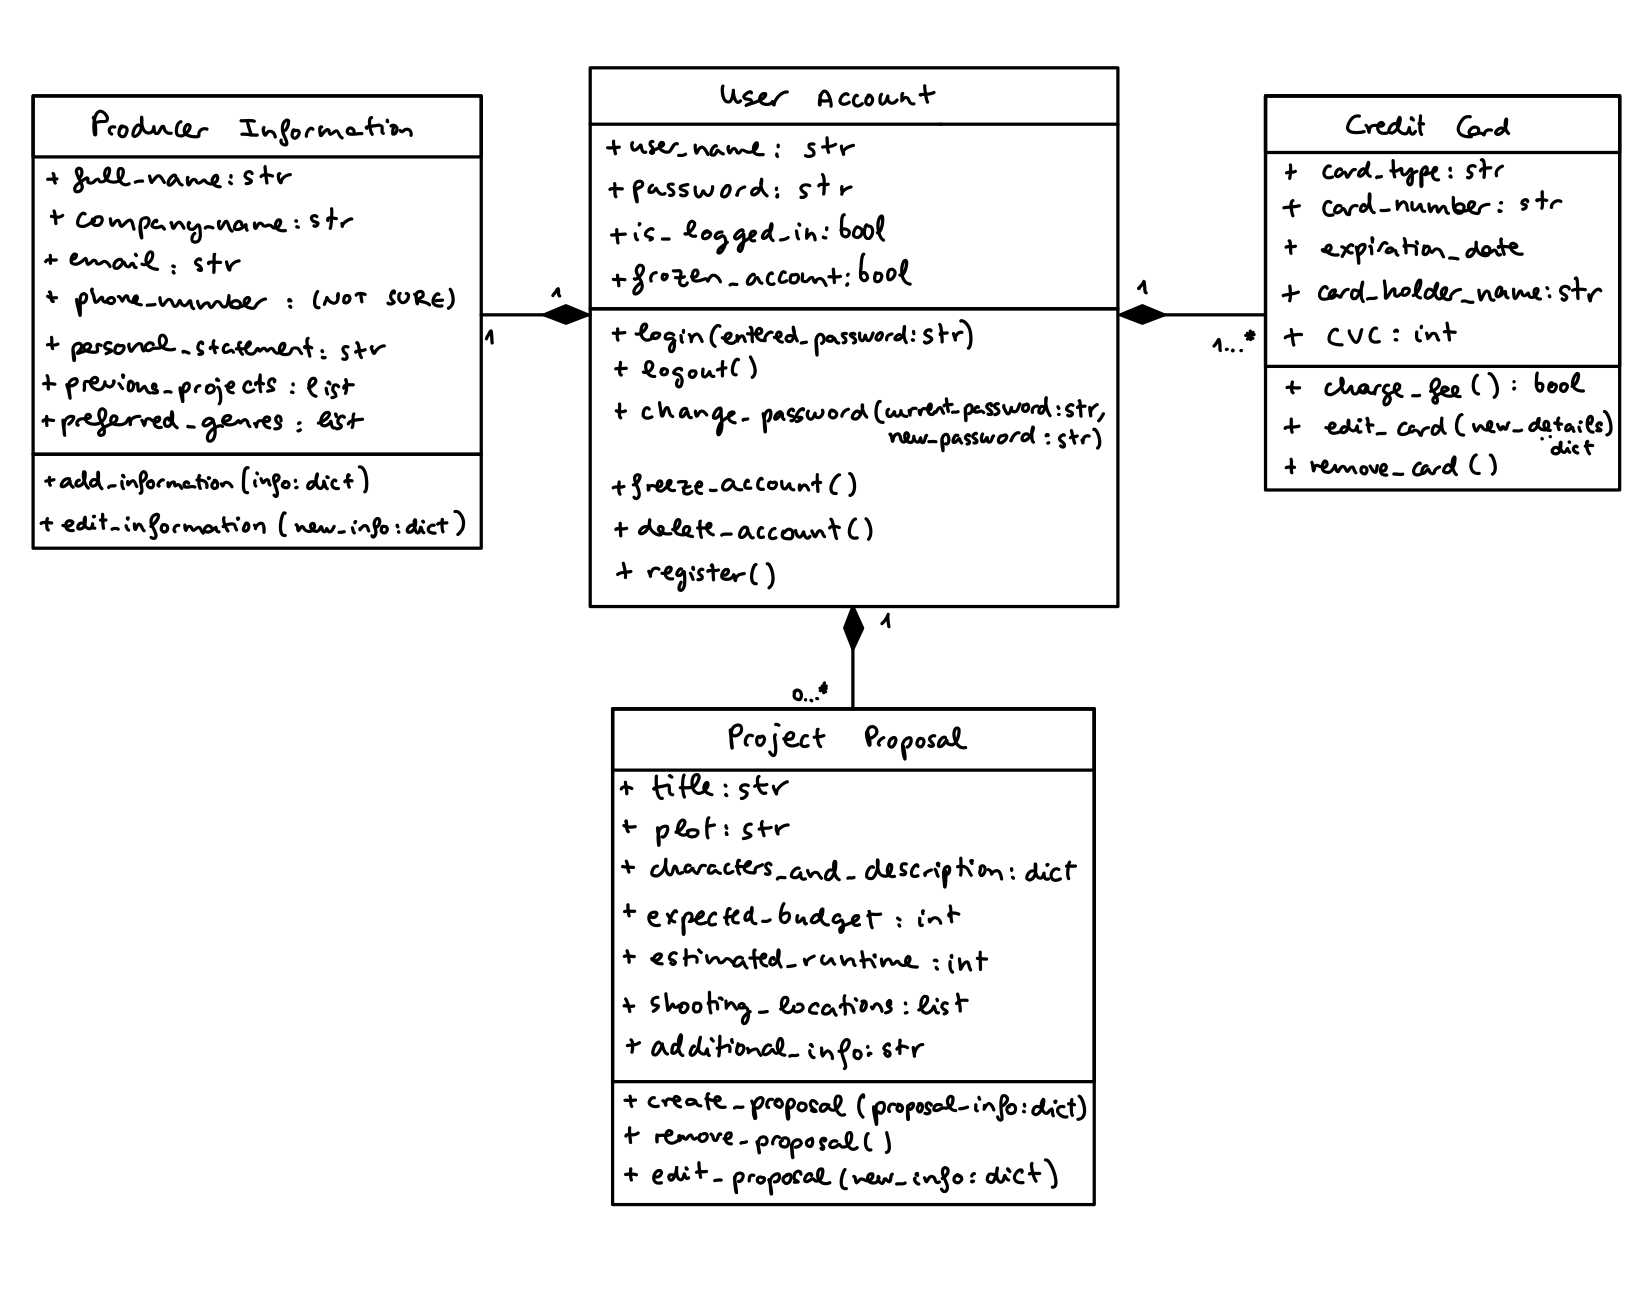 Producer Information
+ full_name: str
+ company_name: str
+ email: str
+ phone_number: (NOT SURE)
+ personal_statement: str
+ previous_projects: list
+ preferred_genres: list
+ add_information(info: dict)
+ edit_information(new_info: dict)
1
1
User Account
+ user_name: str
+ password: str
+ is_logged_in: bool
+ frozen_account: bool
+ login(entered_password: str)
+ logout()
+ change_password(current_password: str,
new_password: str)
+ freeze_account()
+ delete_account()
+ register()
1
1...*
Credit Card
+ card_type: str
+ card_number: str
+ expiration_date
+ card_holder_name: str
+ CVC: int
+ charge_fee(): bool
+ edit_card(new_details)
: dict
+ remove_card()
1
0...*
Project Proposal
+ title: str
+ plot: str
+ characters_and_description: dict
+ expected_budget: int
+ estimated_runtime: int
+ shooting_locations: list
+ additional_info: str
+ create_proposal(proposal_info: dict)
+ remove_proposal()
+ edit_proposal(new_info: dict)